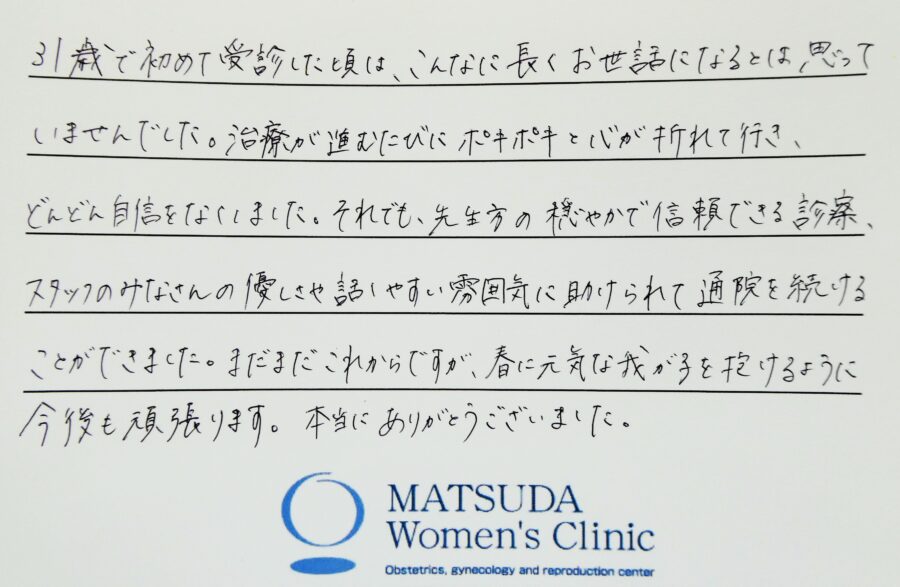 31歳で初めて受診した頃は、こんなに長くお世話になるとは思って
いませんでした。治療が進むたびにポキポキと心が折れて行き、
どんどん自信をなくしました。それでも、先生方の穏やかで信頼できる診察、
スタッフのみなさんの優しさや話しやすい雰囲気に助けられて通院を続ける
ことができました。まだまだこれからですが、春に元気な我が子を抱けるように
今後も頑張ります。本当にありがとうございました。
MATSUDA
Women's Clinic
Obstetrics, gynecology and reproduction center